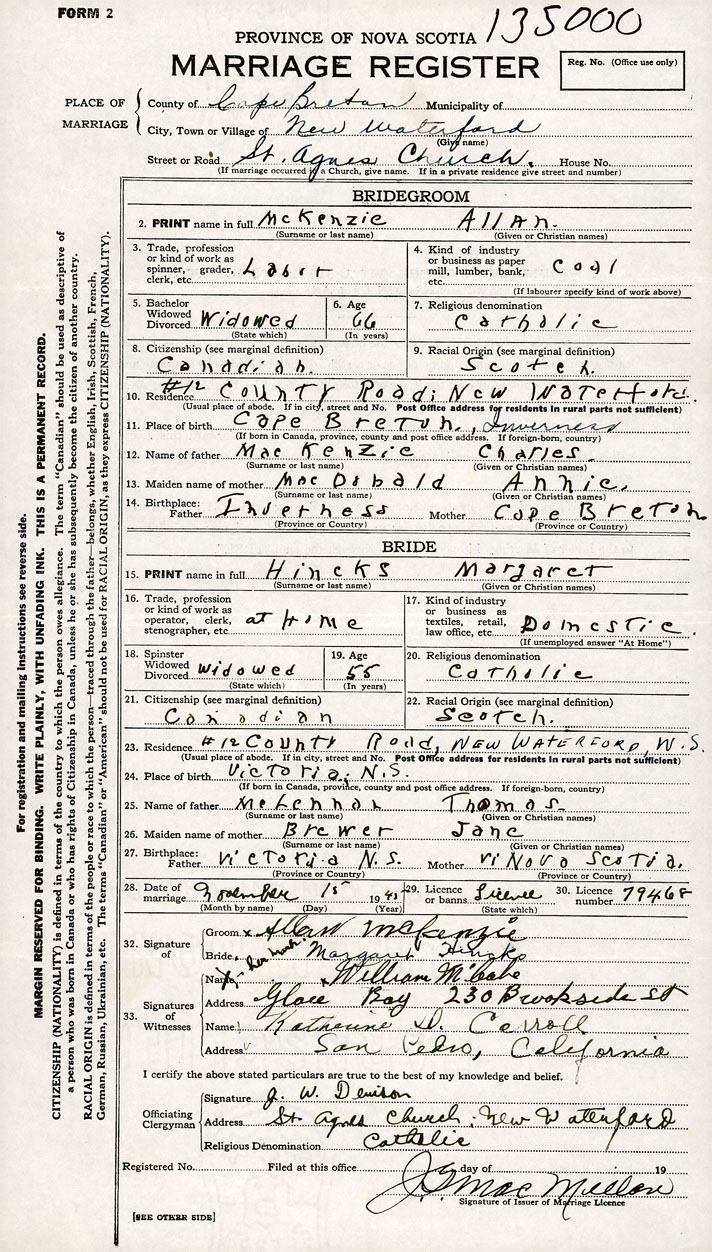 FORM 2
135000
PROVINCE OF NOVA SCOTIA
MARRIAGE REGISTER
Reg. No. (Office use only)
PLACE OF MARRIAGE
County of Cape Breton Municipality of
City, Town or Village of New Waterford
(Give name)
Street or Road St. Agnes Church. House No.
(If marriage occurred in a Church, give name. If in a private residence give street and number)
BRIDEGROOM
2. PRINT name in full McKenzie Allan.
(Surname or last name) (Given or Christian names)
3. Trade, profession or kind of work as spinner, grader, clerk, etc. Labor
4. Kind of industry or business as paper mill, lumber, bank, etc. Coal
(If labourer specify kind of work above)
5. Bachelor Widowed Divorced Widowed
(State which)
6. Age 66
(In years)
7. Religious denomination
Catholic
8. Citizenship (see marginal definition)
Canadian.
9. Racial Origin (see marginal definition)
Scotch.
10. Residence #12 County Road; New Waterford.
(Usual place of abode. If in city, street and No. Post Office address for residents in rural parts not sufficient)
11. Place of birth Cape Breton, Inverness
(If born in Canada, province, county and post office address. If foreign-born, country)
12. Name of father MacKenzie Charles
(Surname or last name) (Given or Christian names)
13. Maiden name of mother MacDonald Annie.
(Surname or last name) (Given or Christian names)
14. Birthplace: Father Inverness Mother Cape Breton
(Province or Country) (Province or Country)
BRIDE
15. PRINT name in full Hincks Margaret
(Surname or last name) (Given or Christian names)
16. Trade, profession or kind of work as operator, clerk, stenographer, etc. at Home
17. Kind of industry or business as textiles, retail, law office, etc. Domestic.
(If unemployed answer "At Home")
18. Spinster Widowed Divorced Widowed
(State which)
19. Age 55
(In years)
20. Religious denomination
Catholic
21. Citizenship (see marginal definition)
Canadian
22. Racial Origin (see marginal definition)
Scotch.
23. Residence #12 County Road, New Waterford, N.S.
(Usual place of abode. If in city, street and No. Post Office address for residents in rural parts not sufficient)
24. Place of birth Victoria, N.S.
(If born in Canada, province, county and post office address. If foreign-born, country)
25. Name of father McLennan Thomas
(Surname or last name) (Given or Christian names)
26. Maiden name of mother Brewer Jane
(Surname or last name) (Given or Christian names)
27. Birthplace: Father Victoria N.S. Mother Nova Scotia.
(Province or Country) (Province or Country)
28. Date of marriage November 15 19
(Month by name) (Day) (Year)
29. Licence or banns Licence
(State which)
30. Licence number 79468
32. Signature of
Groom x Allan McKenzie
Bride Margaret Hincks
X her mark
33. Signatures of Witnesses
Name William McCabe
Address Glace Bay 230 Brookside St
Name Katherine D. Carroll
Address San Pedro, California
I certify the above stated particulars are true to the best of my knowledge and belief.
Officiating Clergyman
Signature J. W. Denison
Address St Agnes Church, New Waterford
Religious Denomination Catholic
Registered No. Filed at this office day of 19
J. MacMillan
Signature of Issuer of Marriage Licence
[SEE OTHER SIDE]
For registration and mailing instructions see reverse side.
MARGIN RESERVED FOR BINDING. WRITE PLAINLY, WITH UNFADING INK. THIS IS A PERMANENT RECORD.
CITIZENSHIP (NATIONALITY) is defined in terms of the country to which the person owes allegiance. The term "Canadian" should be used as descriptive of
a person who was born in Canada or who has rights of Citizenship in Canada, unless he or she has subsequently become the citizen of another country.
RACIAL ORIGIN is defined in terms of the people or race to which the person—traced through the father—belongs, whether English, Irish, Scottish, French,
German, Russian, Ukrainian, etc. The terms "Canadian" or "American" should not be used for RACIAL ORIGIN, as they express CITIZENSHIP (NATIONALITY).